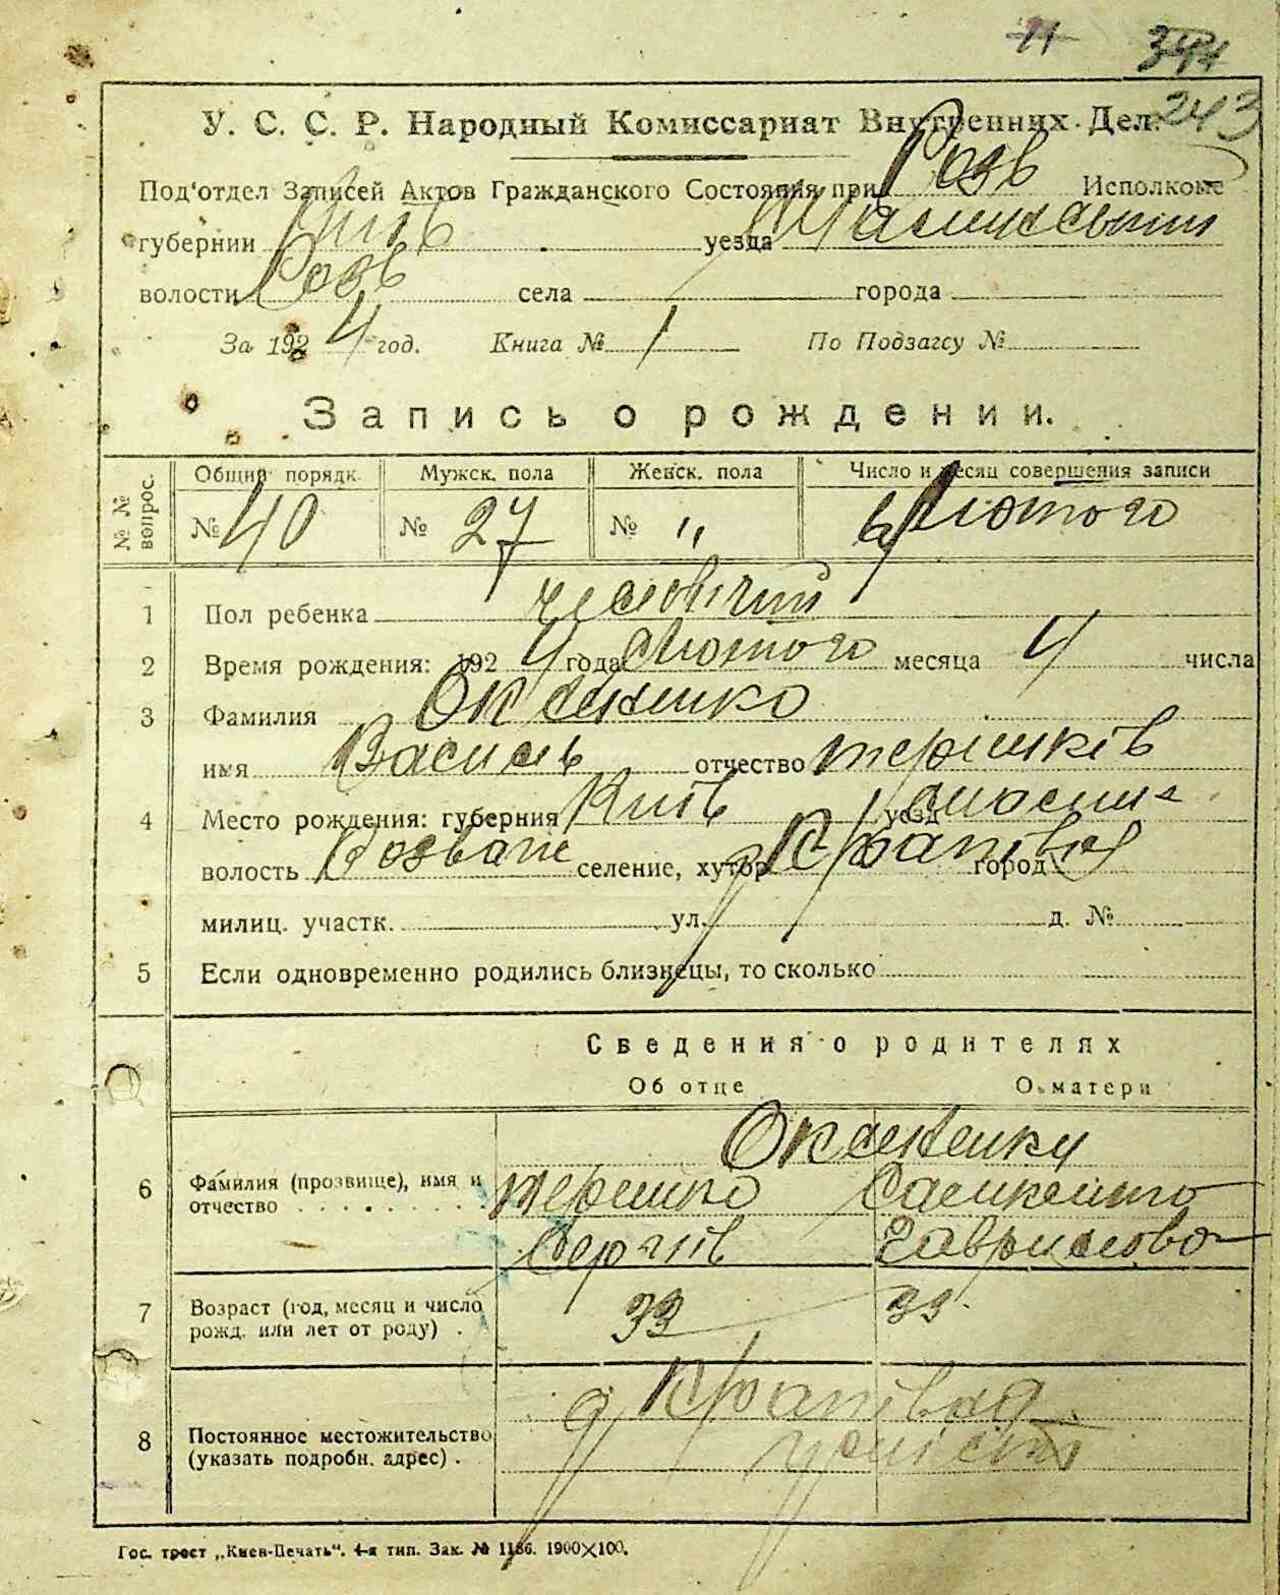 11 344
243
У. С. С. Р. Народный Комиссариат Внутренних Дел.
Под'отдел Записей Актов Гражданского Состояния при Розв Исполкоме
губернии Київ уезда
волости Розв села города
За 1924 год. Книга № 1 По Подзагсу №
Запись о рождении.
№ № вопрос. Общий порядк. Мужск. пола Женск. пола Число и месяц совершения записи
№ 40 № 27 № " 6 Лютого
1 Пол ребенка чоловічий
2 Время рождения: 1924 года Лютого месяца 4 числа
3 Фамилия Оксаненко
имя Василь отчество Терешків
4 Место рождения: губерния Київ уезд
волость Розваж селение, хутор Крапівня город
милиц. участк. ул. д. №
5 Если одновременно родились близнецы, то сколько
Сведения о родителях
Об отце О матери
Оксаненки
6 Фамилия (прозвище), имя и Терешко
отчество . . . . . . . . . Сергіїв Гаврилова
7 Возраст (год, месяц и число 33 33
рожд. или лет от роду) .
Крапівня
8 Постоянное местожительство
(указать подробн. адрес) .
Гос. трест „Киев-Печать". 4-я тип. Зак. № 1186. 1900×100.